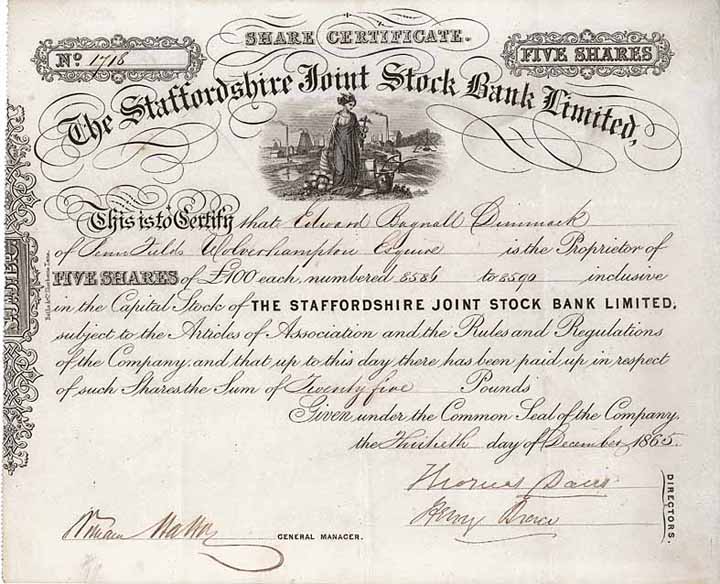 SHARE CERTIFICATE.
No. 1716
FIVE SHARES
The Staffordshire Joint Stock Bank Limited,
This is to Certify that Edward Bagnall Dimmack
of Penn Fields Wolverhampton Esquire is the Proprietor of
FIVE SHARES of £100 each, numbered 8586 to 8590 inclusive
in the Capital Stock of THE STAFFORDSHIRE JOINT STOCK BANK LIMITED,
subject to the Articles of Association and the Rules and Regulations
of the Company, and that up to this day there has been paid up in respect
of such Shares the Sum of Twenty five Pounds
Given under the Common Seal of the Company,
the Thirtieth day of December 1865.
Thomas
Henry
DIRECTORS.
William
GENERAL MANAGER.